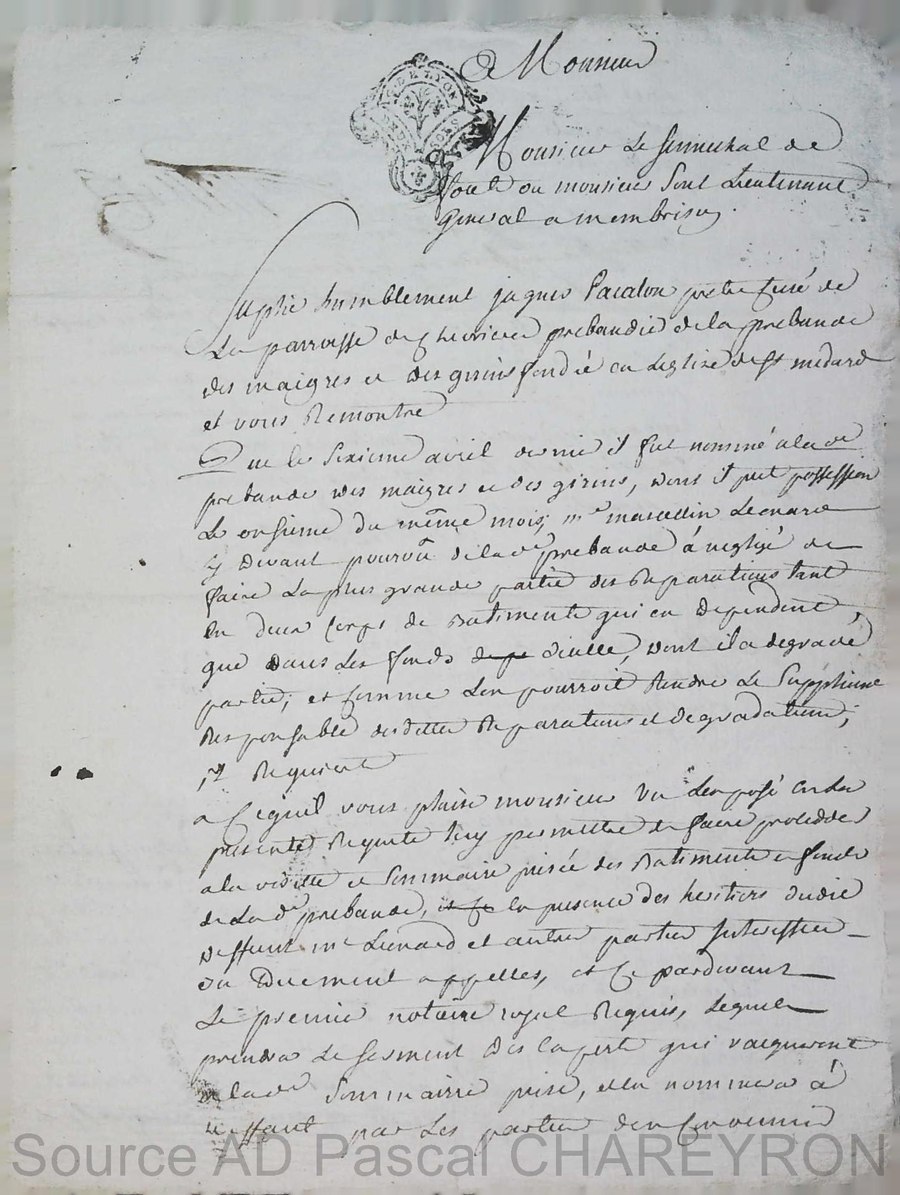 A Monsieur
Monsieur Le sennechal de
ou monsieur sont Lieutenant
General a
Suplie humblement jaques Pacalon prêtre curé de
La parroisse de prebandié de la prebande
des maigres et des girins fondée en Leglise de St medard
et vous Remontre
Que le sixieme avril dernier il fut nommé a la de
prebande des maigres et des girins, dont il prit possession
Le onsieme du même mois; me marcellin Leonard
cy devant pourvû de la de prebande à negligé de
faire La plus grande partie des Reparations tant
En deux Corps de Batiments qui en Dependent,
que dans Les fonds d'icelle, dont il a degradé
partie; et comme Lon pourroit Rendre Le Suppliant
Responsable desdittes Reparations et degradations;
il Requiert
a Cequil vous plaise monsieur vu Lexposé en la
presente Requete luy permettre de faire proceder
a la visitte et Sommaire prisée des Batiments et fonds
de La de prebande, en la presence des heritiers dudit
deffunt me Leonard et autres parties Interessées
ou Duement appellés, et Ce pardevant
Le premier notaire royal Requis, Lequel
prendra Le serment des Experts qui vacqueront
a la de Sommairre prisée, et en nommera à
deffaut par Les parties den Convenir
Source AD Pascal CHAREYRON